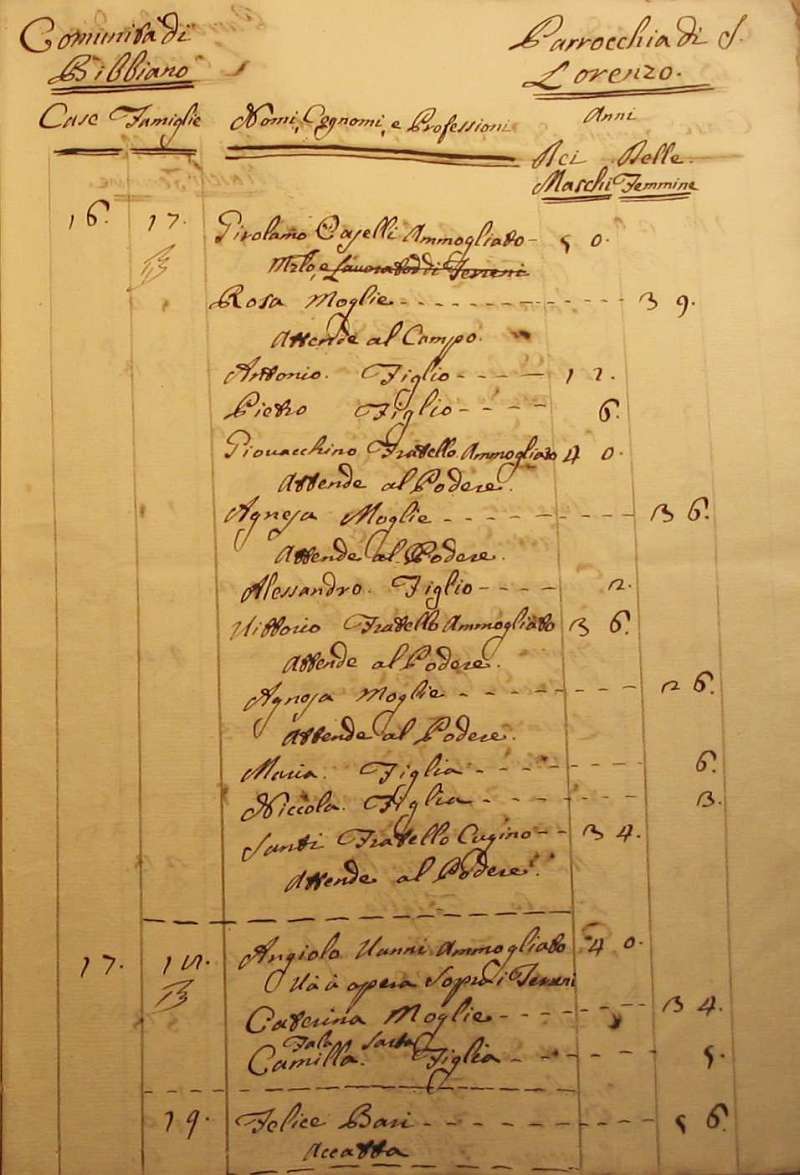 Comunità di Bibbiano
Parrocchia di S. Lorenzo.
Case Famiglie Nomi, Cognomi, e Professioni Anni
Dei Maschi Delle Femmine
16. 17. Girolamo Caselli Ammogliato - 50.
Lavorator di Terreni
Rosa Moglie - - - - 39.
Attende al Campo.
Antonio. Figlio - - - - 12.
Pietro Figlio - - - - 6.
Giovacchino Fratello Ammogliato 40.
Attende al Podere.
Agnesa Moglie - - - - 36.
Attende al Podere.
Alessandro. Figlio - - - - 2.
Vittorio Fratello Ammogliato 36.
Attende al Podere.
Agnesa Moglie - - - - 26.
Attende al Podere.
Maria. Figlia - - - - 6.
Niccola. Figlia - - - - 3.
Santi Fratello Cugino - - 34.
Attende al Podere.
17. 18. Angiolo Vanni Ammogliato 40.
Và à opera Sopra i Terreni
Caterina Moglie - - - - 34.
Fala Sarta
Camilla. Figlia - - - - 5.
19. Felice Bari - - - - 56.
Accatta